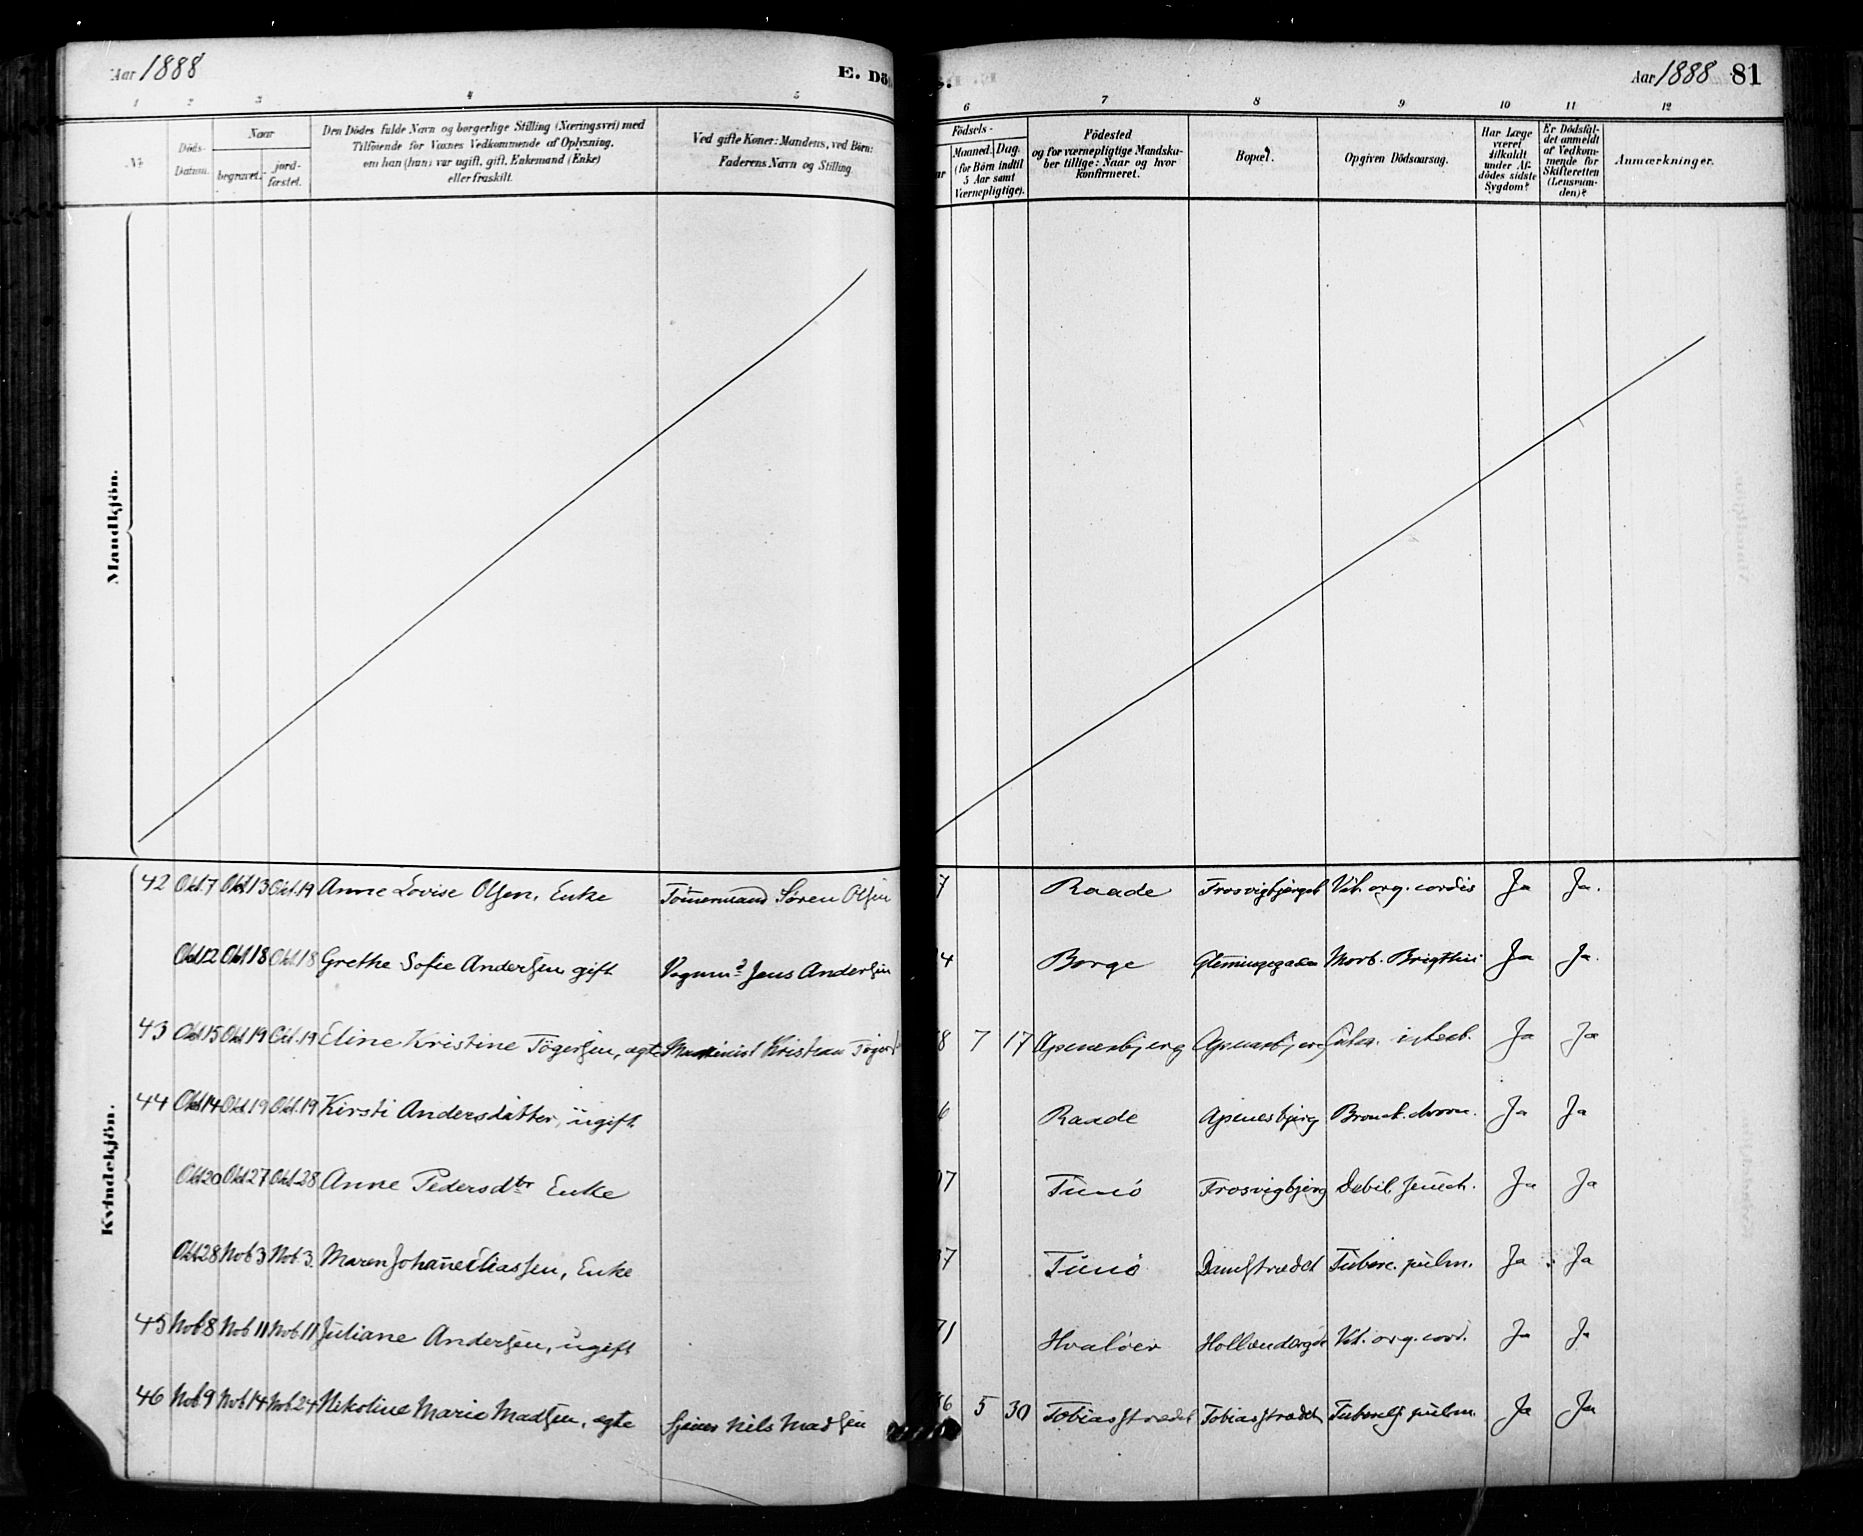 Aar 1888
E. Dö
Aar 1888 81
1 2 3 4 5 6 7 8 9 10 11 12
No
Döds-
Datum.
Naar
begravet.
jord-
fæstet.
Den Dödes fulde Navn og borgerlige Stilling (Næringsvei) med
Tilföiende for Voxnes Vedkommende af Oplysning,
om han (hun) var ugift, gift, Enkemand (Enke)
eller fraskilt.
Ved gifte Koner: Mandens, ved Börn:
Faderens Navn og Stilling.
Födsels-
Maaned. Dag.
(for Börn indtil
5 Aar samt
Værnepligtige).
Födested
og for værnepligtige Mandska-
ber tillige: Naar og hvor
konfirmeret.
Bopæl.
Opgiven Dödsaarsag.
Har Læge
været
tilkaldt
under Af-
dödes sidste
Sygdom?
Er Dödsfal-
det anmeldt
af Vedkom-
mende for
Skifteretten
(Lensman-
den)?
Anmærkninger.
Mandkjön.
Kvindekjön.
42 Okt.7 Okt.13 Okt.19 Anne Lovise Olsen, Enke Tömmermand Søren Olsen 7 Raade Ja Ja.
Okt12 Okt18 Okt.18 Grethe Sofie Andersen gift Vognmd Jens Andersen 4 Borge Morb. Brigthii Ja Ja.
43 Okt15 Okt.19 Okt.19 Eline Kristine Tögersen, ægte Maskinist Kristian 8 7 17 Apenesbjerg Apenesbjerg Ja Ja
44 Okt14 Okt.19 Okt.19 Kirsti Andersdatter, ugift 6 Raade Apenesbjerg Ja Ja
Okt20 Okt27 Okt.28 Anne Pedersdtr Enke 07 Tunö Frosvigbjerg Debil. senect. Ja Ja
Okt28 Nob3 Nob.3. Maren Johanne Eliassen, Enke 7 Tunö Damstrædet Tuberc. pulm. Ja Ja
45 Nob8 Nob11 Nob.11 Juliane Andersen, ugift 71 Hvalöer Vit. org. cord. Ja Ja
46 Nob9 Nob14 Nob24 Nikoline Marie Madsen, ægte Nils Madsen 86 5 30 Tobiasstrædet Tobiasstrædet pulm. Ja Ja